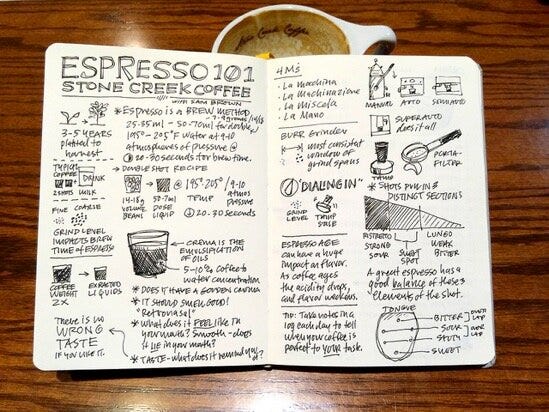 Stone Creek Coffee
ESPRESSO 101
STONE CREEK COFFEE
WITH SAM BROWN
3-5 YEARS
planted to
harvest.
TYPICAL
COFFEE
DRINK
2 SHOTS MILK
FINE COARSE
GRIND LEVEL
IMPACTS BREW
TIME OF ESPRESSO
COFFEE
WEIGHT
2X
EXTRACTED
LIQUIDS
THERE IS NO
WRONG
TASTE
IF YOU LIKE IT.
* ESPRESSO is a BREW METHOD
25-35 ml - 50-70ml for double,
195° - 205°F water at 9-10
atmospheres of pressure @
20-30 seconds for brew time.
DOUBLE SHOT RECIPE
14-18g
BEANS
50-70ml
DOSE
LIQUID
@ 195° 205°
TEMP
/ 9-10
atmos
PRESSURE
20-30 seconds
CREMA IS THE
EMULSIFICATION
OF OILS
5-10% coffee to
water concentration
* DOES IT HAVE A GOLDEN CREMA
* IT SHOULD SMELL GOOD!
"Retronasal"
* What does it FEEL like IN
your mouth? Smooth - does
it LIE in your mouth?
* TASTE - what does it remind you of?
4 M's
• La macchina
• La Macinazione
• La Miscela
• La Mano
BURR Grinders
most consistent
window of
grind spans
"DIALING IN"
GRIND
LEVEL
TAMP
ESPRESSO AGE
can have a huge
impact on flavor.
As coffee ages
the acidity drops,
and flavor weakens.
TIP: Take notes in a
log each day to tell
when your coffee is
perfect to YOUR taste.
MANUAL AUTO SEMIAUTO
SUPERAUTO
does it all
TAMP
PORTA-
FILTER
* SHOTS PULL IN 3
DISTINCT SECTIONS
RISTRETTO
STRONG
SOUR
SWEET
SPOT
LUNGO
WEAK
BITTER
A great espresso has a
good balance of these 3
elements of the shot.
TONGUE
BITTER
SOUR
SALTY
SWEET
OVER
LAP
OVER
LAP